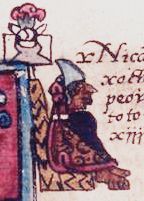 yNica
xoch
peor
toto
xiii